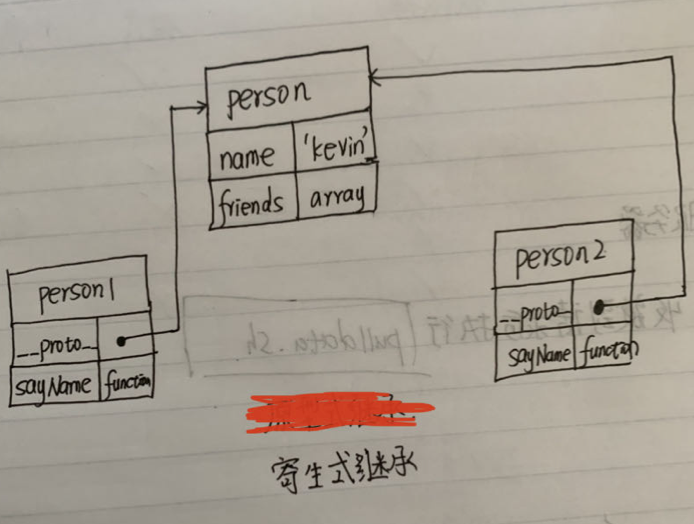 person
name 'kevin'
friends array
person1
__proto__
sayName function
person2
__proto__
sayName function
pulldata.sh
寄生式继承